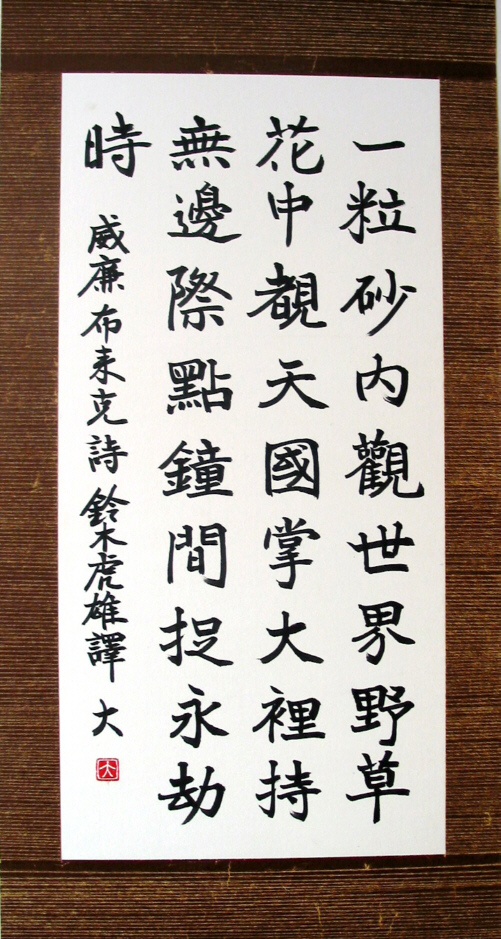 一粒砂内觀世界野草
花中覩天國掌大裡持
無邊際點鐘間捉永劫
時
威廉布来克詩 鈴木虎雄譯 大
大